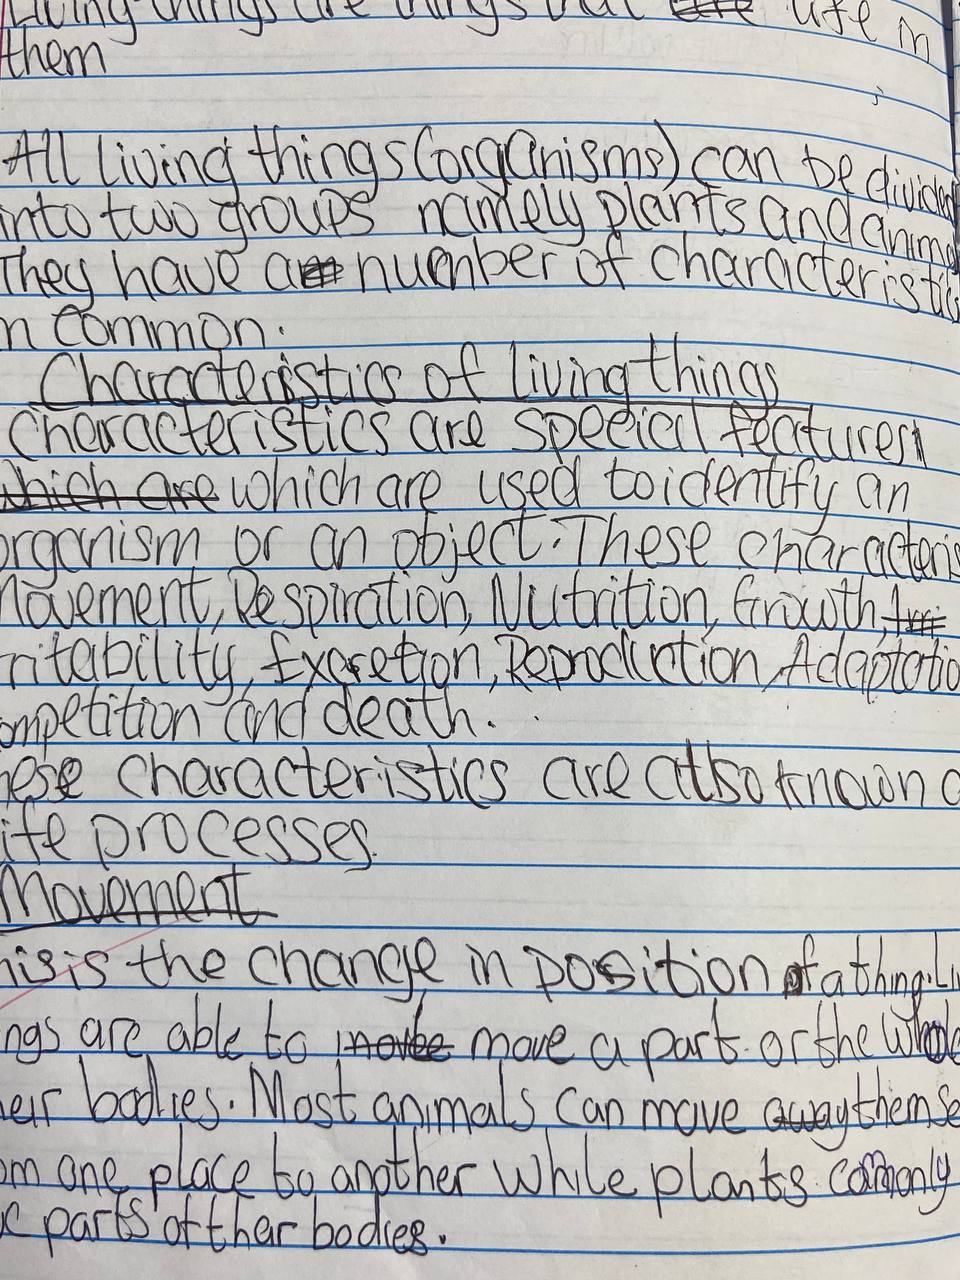 Living things are things that life in
them
All living things (organisms) can be divided
into two groups namely plants and anima
They have a number of characteristic
n common.
Characteristics of living things
Characteristics are special features
which are which are used to identify an
organism or an object. These characteris
Movement, Respiration, Nutrition, Growth,
rritability, Excretion, Reproduction, Adaptatio
ompetition and death.
hese characteristics are also known a
ife processes.
Movement
his is the change in position of a thing. Li
ngs are able to move a part or the whole
eir bodies. Most animals can move away themse
om one place to another while plants commonly
parts of their bodies.